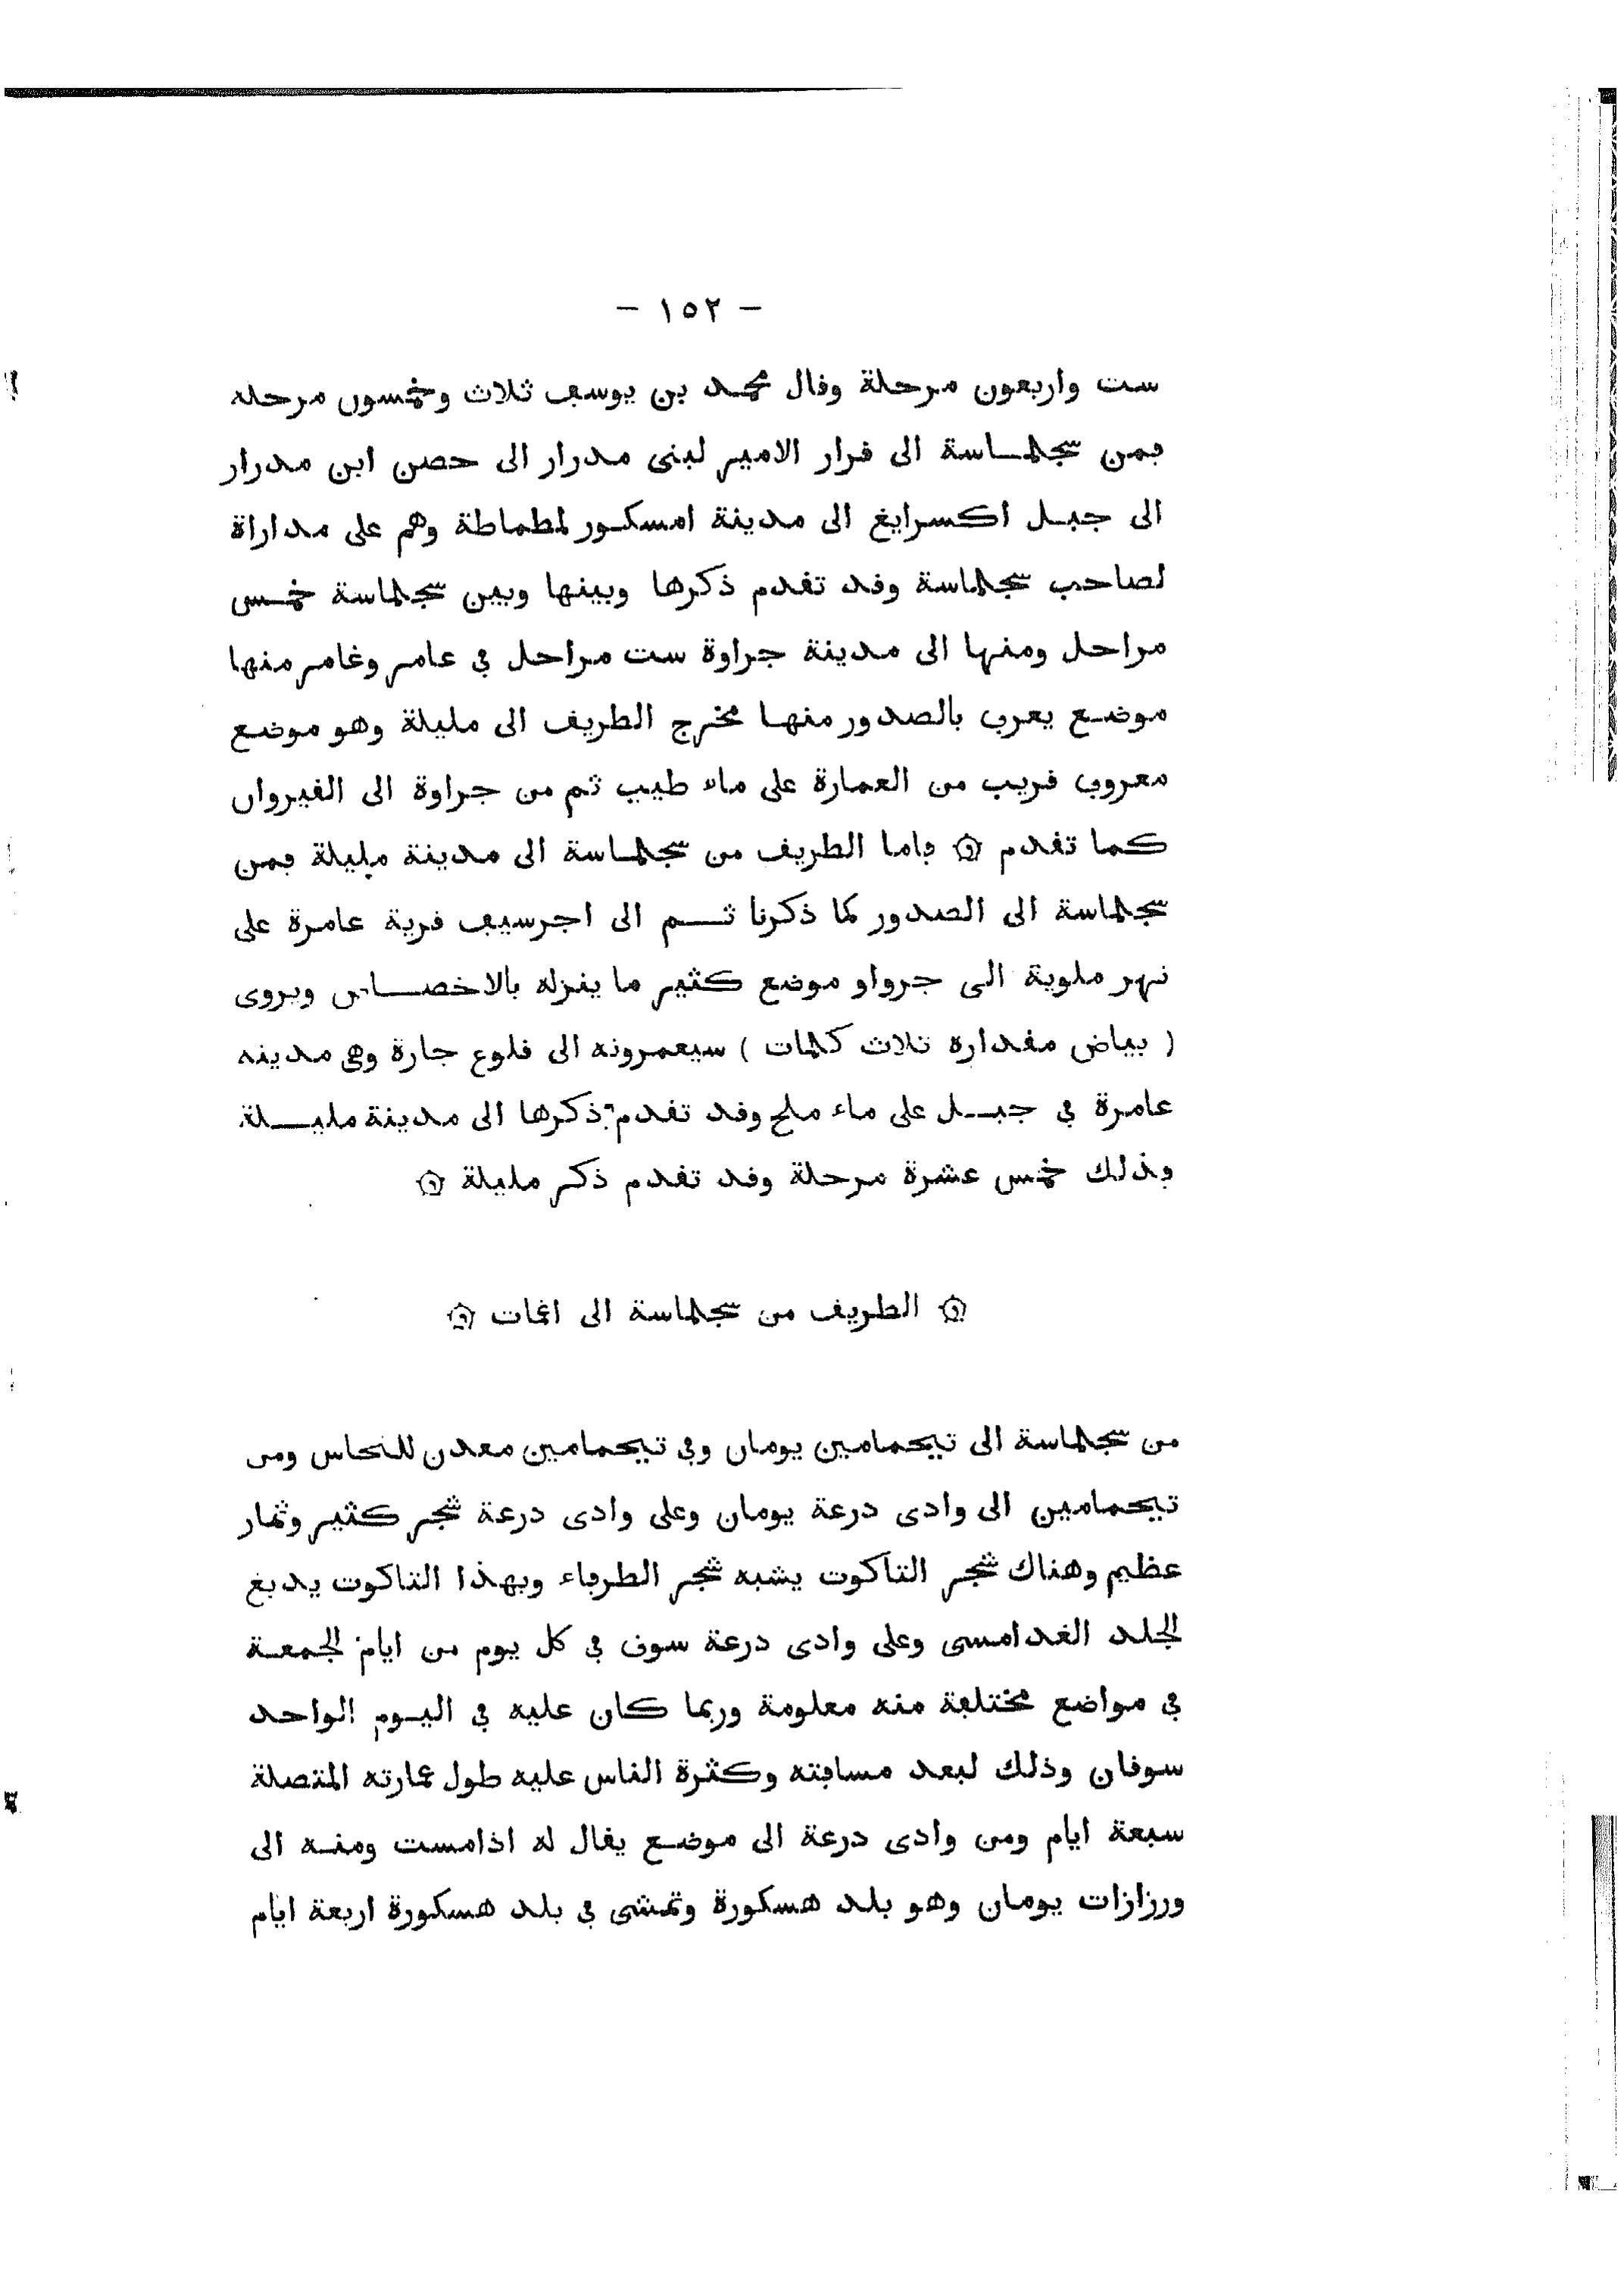 – ١٥٢ –
ست واربعون مرحلة وقال محمد بن يوسف ثلاث وخمسون مرحلة
فمن سجلماسة الى قرار الامير لبنى مدرار الى حصن ابن مدرار
الى جبل اكسرايغ الى مدينة امسكور لمطماطة وهم على مداراة
لصاحب سجلماسة وقد تقدم ذكرها وبينها وبين سجلماسة خمس
مراحل ومنها الى مدينة جراوة ست مراحل في عامر وغامر منها
موضع يعرف بالصدور منها مخرج الطريق الى مليلة وهو موضع
معروف قريب من العمارة على ماء طيب ثم من جراوة الى القيروان
كما تقدم ۞ فاما الطريق من سجلماسة الى مدينة مليلة فمن
سجلماسة الى الصدور كما ذكرنا ثم الى اجرسيف قرية عامرة على
نهر ملوية الى جرواو موضع كثير ما ينزله بالاخصاص ويروى
( بياض مقداره ثلاث كلمات ) سيعمرونه الى قلوع جارة وهى مدينة
عامرة في جبل على ماء ملح وقد تقدم ذكرها الى مدينة مليلة
فذلك خمس عشرة مرحلة وقد تقدم ذكر مليلة ۞
۞ الطريق من سجلماسة الى اغمات ۞
من سجلماسة الى تيحمامين يومان وفي تيحمامين معدن للنحاس ومن
تيحمامين الى وادى درعة يومان وعلى وادى درعة شجر كثير وثمار
عظيم وهناك شجر التاكوت يشبه شجر الطرفاء وبهذا التاكوت يدبغ
الجلد الغدامسى وعلى وادى درعة سوق في كل يوم من ايام الجمعة
في مواضع مختلفة منه معلومة وربما كان عليه في اليوم الواحد
سوقان وذلك لبعد مسافته وكثرة الناس عليه طول عمارته المتصلة
سبعة ايام ومن وادى درعة الى موضع يقال له اذامست ومنه الى
ورزازات يومان وهو بلد هسكورة وتمشى في بلد هسكورة اربعة ايام